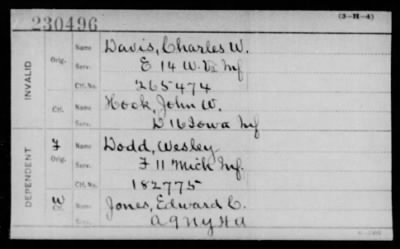 230496
(3-H-4)
INVALID
Orig.
Name Davis, Charles W.
Serv. E 14 W. Va Inf
Ctf. No. 265474
Ctf.
Name Hook, John W.
Serv. D 16 Iowa Inf
DEPENDENT
F
Orig.
Name Dodd, Wesley
Serv. F 11 Mich Inf.
Ctf. No. 182775
W
Ctf.
Name Jones, Edward C.
Serv. A 9 NY HA